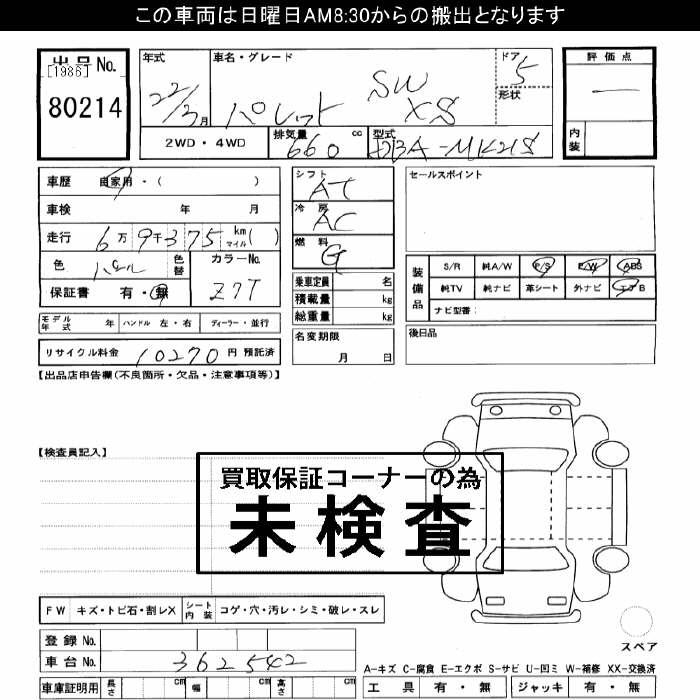 この車両は日曜日AM8:30からの搬出となります
出品No.
[1986]
80214
年式
22/3月
車名・グレード
パレット SW XS
ドア
5
形状
評価点
内装
2WD・4WD
排気量
660 cc
型式
DBA-MK21S
車歴 自家用・( )
車検 年 月
走行 6万9千375 km マイル( )
色 パール
色替
カラーNo.
Z7T
保証書 有・無
モデル年式 年
ハンドル 左・右
ディーラー・並行
リサイクル料金 10270 円 預託済
シフト
AT
冷房
AC
燃料
G
乗車定員 名
積載量 kg
総重量 kg
名変期限
月 日
セールスポイント
装備品
S/R 純A/W P/S P/W ABS
純TV 純ナビ 革シート 外ナビ エアB
ナビ型番:
後日品
【出品店申告欄(不良箇所・欠品・注意事項等)】
【検査員記入】
買取保証コーナーの為
未検査
FW キズ・トビ石・割レX
シート内装 コゲ・穴・汚レ・シミ・破レ・スレ
スペア
登録No.
車台No. 362542
A-キズ C-腐食 E-エクボ S-サビ U-凹ミ W-補修 XX-交換済
車庫証明用 長さ cm 幅 cm 高さ cm
工具 有・無 ジャッキ 有・無